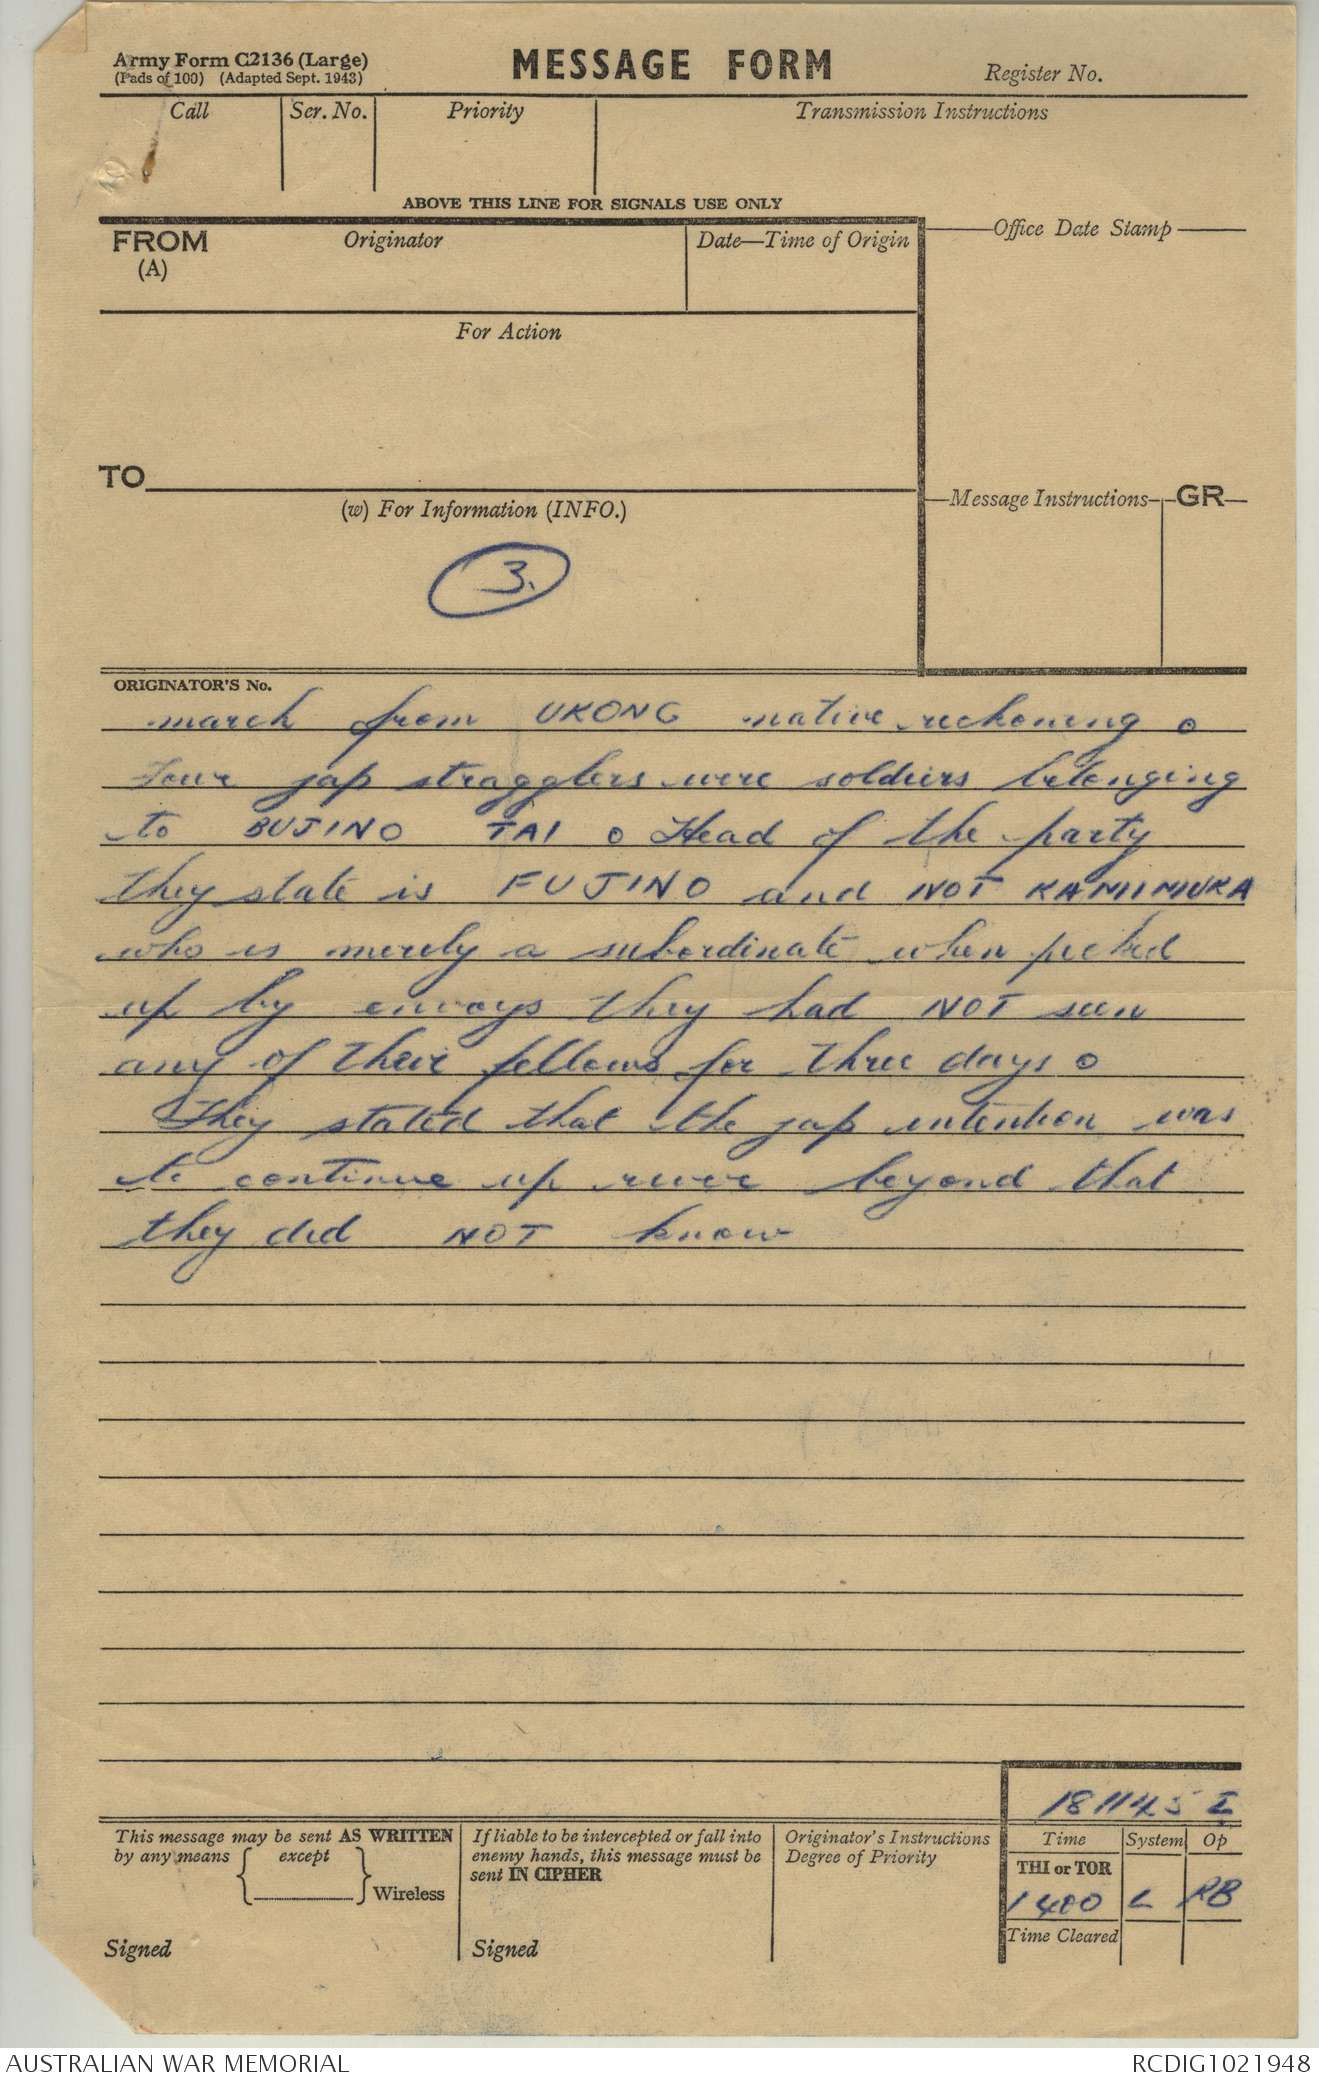 Army Form C2136 (Large)
(Pads of 100) (Adapted Sept. 1943)
MESSAGE FORM
Register No.
Call
Ser. No.
Priority
Transmission Instructions
ABOVE THIS LINE FOR SIGNALS USE ONLY
FROM
(A)
Originator
Date—Time of Origin
Office Date Stamp
For Action
TO
(w) For Information (INFO.)
Message Instructions
GR
3.
ORIGINATOR'S No.
march from UKONG native reckoning o
Four jap stragglers were soldiers belonging
to BUJINO TAI o Head of the party
they state is FUJINO and NOT KAMIMUKA
who is merely a subordinate when picked
up by envoys they had NOT seen
any of their fellows for three days o
They stated that the jap intention was
to continue up river beyond that
they did NOT know
181145 I
This message may be sent AS WRITTEN
by any means { except } Wireless
Signed
If liable to be intercepted or fall into
enemy hands, this message must be
sent IN CIPHER
Signed
Originator's Instructions
Degree of Priority
Time System Op
THI or TOR
1400 L RB
Time Cleared
AUSTRALIAN WAR MEMORIAL
RCDIG1021948